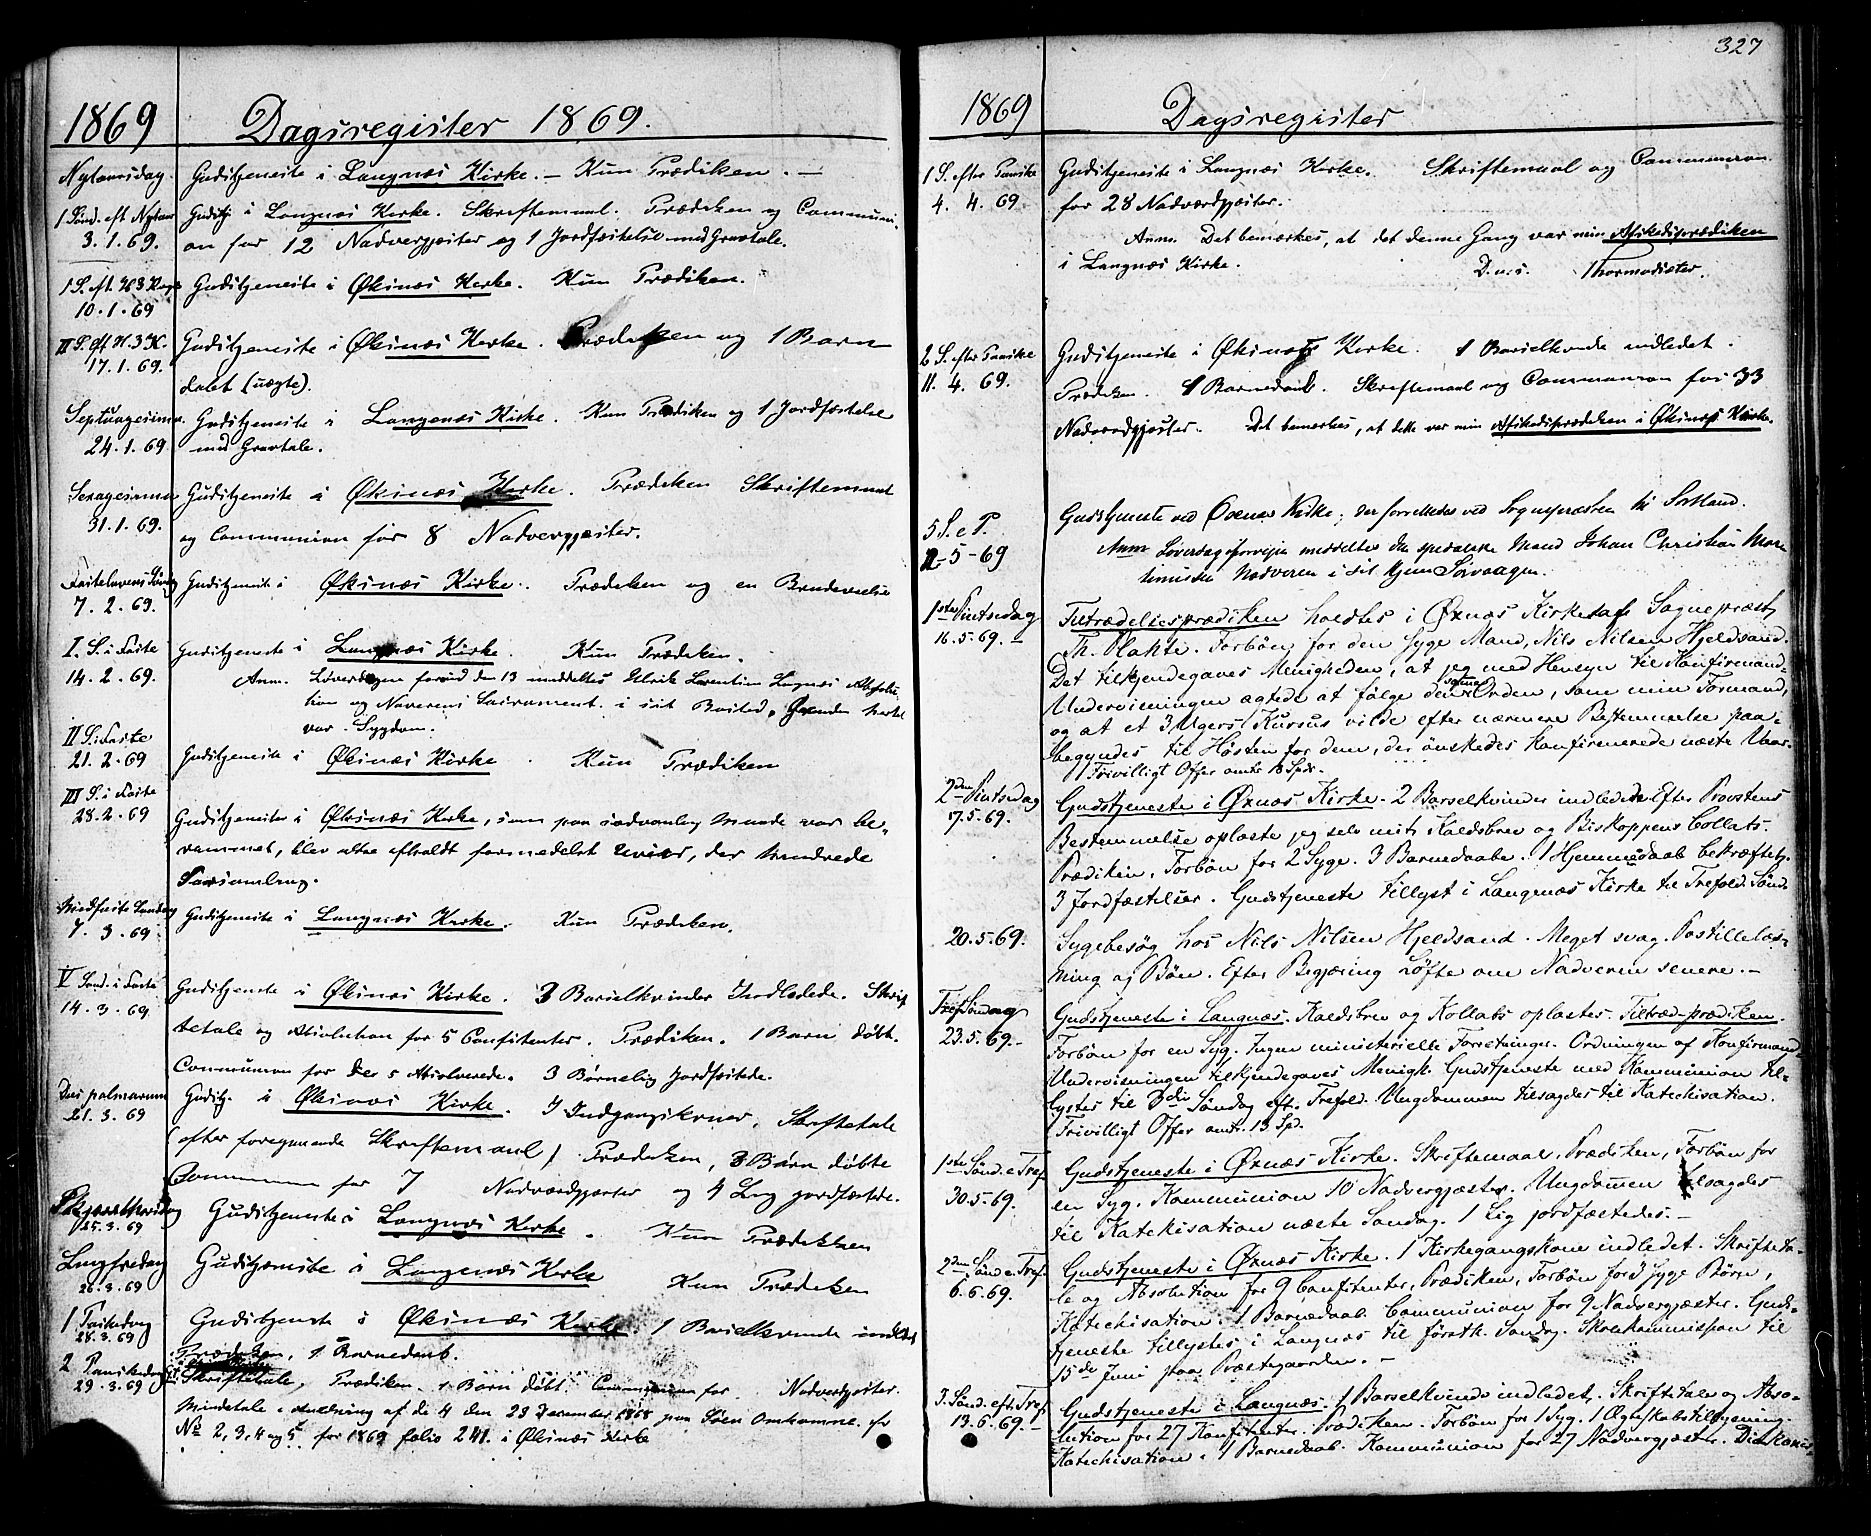 1869 Dagsregister 1869.
Nytaarsdag. Gudstjeneste i Langnæs Kirke. – Kun Prædiken. –
1 Sønd. eft Nytaar Gudstj i Langnæs Kirke. Skriftemaal. Prædiken og Communi-
3.1.69. on for 12 Nadvergjæster og 1 Jordfæstelse med Gravtale.
1 S. eft. H 3 Kong Gudstjeneste i Øksnæs Kirke. Kun Prædiken.
10.1.69
II S. eft H. 3 K. Gudstjeneste i Øksnæs Kirke. Prædiken og 1 Barn
17.1.69. døbt (uægte).
Septuagesima Gudstjeneste i Langenæs Kirke. Kun Prædiken og 1 Jordfæstelse
24.1.69 med Gravtale.
Sexagesima Gudstjeneste i Øksnæs Kirke. Prædiken Skriftemaal
31.1.69. og Communion for 8 Nadvergjæster.
Fastelavens Søndg Gudstjeneste i Øksnæs Kirke. Prædiken og en Brudevielse
7.2.69.
I. S. i Faste Gudstjeneste i Langnæs Kirke. Kun Prædiken.
14.2.69. Anm. Løverdagen forud den 13 meddeltes Ulrik Lorentsen Langnæs Absolu-
tion og Naverens Sacrament i sit Bosted. Grunden hertil
var Sygdom.
II S. i Faste
21.2.69 Gudstjeneste i Øksnæs Kirke. Kun Prædiken
III S. i Faste
28.2.69 Gudstjeneste i Øksnæs Kirke, som paa sædvanlig Maade var be-
rammet, blev ikke afholdt formedelst Uveir, der hindrede
Forsamling.
Midfaste Søndag Gudstjeneste i Langnæs Kirke. Kun Prædiken.
7.3.69
V Sønd. i Faste Gudstjeneste i Øksnæs Kirke. 3 Barselkvinder Indledede. Skrif
14.3.69 tetale og Absolution for 5 Confitenter. Prædiken. 1 Barn døbt.
Communion for der 5 Absolverede. 3 Børnelig Jordfæstede.
Dns palmarum Gudstj. i Øksnæs Kirke. 7 Indgangskoner. Skriftetale
21.3.69 (efter foregaaende Skriftemaal) Prædiken, 3 Børn døbte
Communion for 7 Nadverdgjæster og 4 Lig jordfæstede.
Skjærthorsdag Gudstjeneste i Langnæs Kirke. Kun Prædikken
25.3.69
Langfredag Gudstjeneste i Langenæs Kirke Kun Prædiken
26.3.69
1 Paaskedag Gudstjeneste i Øksnæs Kirke. 1 Barselkvinde indledet
28.3.69 Prædiken, 1 Barnedaab.
2 Paaskedag Skriftetale, Prædiken. 1 Børn døbt. Communion for Nadverdgjæster.
29.3.69 Mindetale i Anledning af de 4 den 23 December 1868 paa Søen Omkomne. cfr
No 2, 3, 4 og 5 for 1869 folio 241. i Øksnæs Kirke
327
1869 Dagsregister
1 S. efter Paaske Gudstjeneste i Langnæs Kirke. Skriftemaal og Communion
4.4.69 for 28 Nadverdgjæster.
Anm. Det bemærkes, at det denne Gang var min Afskedsprædiken
i Langnæs Kirke. D.u.s. Thormodsæter.
2 S. efter Paaske Gudstjeneste i Øksnæs Kirke. 1 Barselkvinde indledet.
11.4.69. Prædiken. 1 Barnedaab. Skriftemaal og Communion for 33
Nadverdgjæster. Det bemærkes, at dette var min Afskedsprædiken i Øksnæs Kirke.
5 S. e P. Gudstjeneste ved Øxnæs Kirke; der forrettedes ved Sognepræsten til Sortland.
2-5-69 Anm Løverdag forveien meddeltes den spedalske Mand Johan Christian Mar-
tinussen Nadveren i sit Hjem Sørvaagen.
1ste Pintsedag Tiltrædelsesprædiken holdtes i Øxnæs Kirke af Sognepræst,
16.5.69. – Th. Plahte. Forbøn for den syge Mand, Nils Nilsen Hjeldsand.
Det tilkjendegaves Menigheden, at jeg med Hensyn til Konfirmand-
Undervisningen agtede at følge den samme Orden, som min Formand,
og at et 3 Ugers Kursus vilde efter nærmere Bestemmelse paa-
begyndes til Høsten for dem, der ønskedes konfirmerede næste Vaar.
Frivilligt Offer omtr 18 Spdr.
2den Pintsedag Gudstjeneste i Øxnæs Kirke. 2 Barselkvinder indledede. Efter Provstens
17.5.69. Bestemmelse oplæste jeg selv mit Kaldsbrev og Biskoppens Collats.
Prædiken, Forbøn for 2 Syge. 3 Barnedaabe. 1 Hjemmedaab bekræftet,
3 Jordfæstelser. Gudstjeneste tillyst i Langenæs Kirke til Trefold. Sønd.
20.5.69. Sygebesøg hos Nils Nilsen Hjeldsand. Meget svag. Postillelæs-
ning og Bøn. Efter Begjæring Løfte om Nadveren senere. –
Tref Søndag Gudstjeneste i Langnæs. Kaldsbrev og Kollats oplæstes. Tiltræd-prædiken.
23.5.69. – Forbøn for en Syg. Ingen ministerielle Forretninger. Ordningen af Konfirmand-
Undervisningen tilkjendegaves Menigh. Gudstjeneste med Kommunion til-
lystes til 3die Søndag eft. Trefold. Ungdommen tilsagdes til Katechisation.
Frivilligt Offer omtr. 13 Spd.
1ste Sønd. e Tref. Gudstjeneste i Øxnæs Kirke. Skriftemaal, Prædiken, Forbøn for
30.5.69. en Syg. Kommunion 10 Nadvergjæster. Ungdommen tilsagdes
til Katekisation næste Søndag. 1 Lig jordfæstedes. –
2den Sønd e. Tref. Gudstjeneste i Øxnæs Kirke. 1 Kirkegangskone indledet. Skrifteta-
6.6.69. le og Absolution for 9 Confitenter, Prædiken, Forbøn for 3 syge Børn,
Katechisation. 1 Barnedaab. Communion for 9 Nadvergjæster. Guds-
tjeneste tillystes i Langnæs til førstk. Søndag. Skolekommission til
15de Juni paa Præstegaarden. –
3. Sønd. eft. Tref. Gudstjeneste i Langnæs. 1 Barselkvinde indledet. Skriftetale og Abso-
13.6.69. – lution for 27 Konfitenter. Prædiken. Forbøn for 1 Syg. 1 Ægteskabstillysning
Katechisation. 1 Barnedaab. Kommunion for 27 Nadvergjæster.